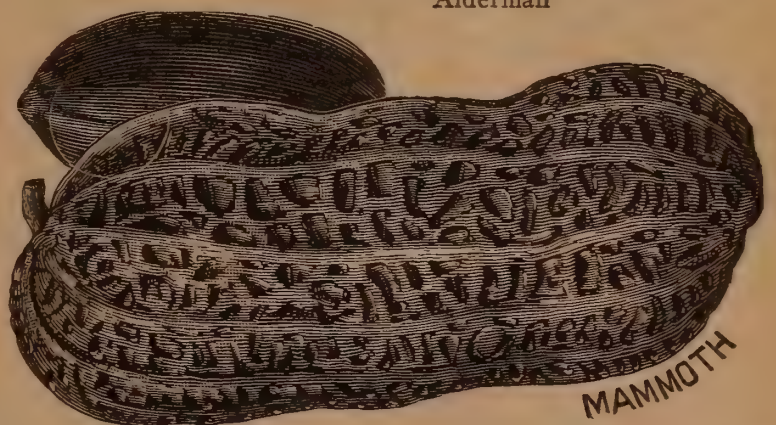 Alderman
MAMMOTH